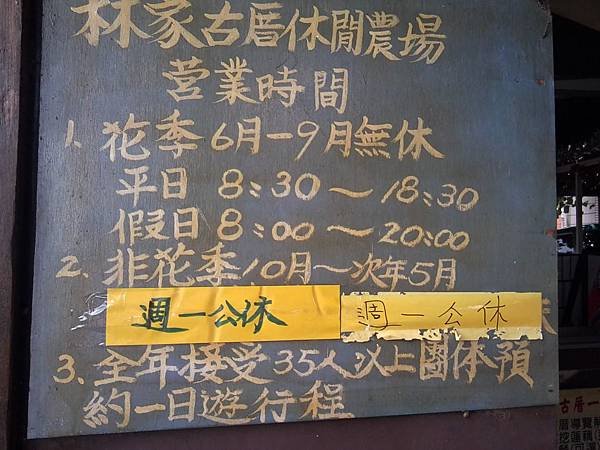 林家古厝休閒農場
營業時間
1. 花季 6月一9月無休
平日 8:30～18:30
假日 8:00～20:00
2. 非花季10月～次年5月
週一公休 週一公休
3. 全年接受35人以上團体預
約一日遊行程
古厝一